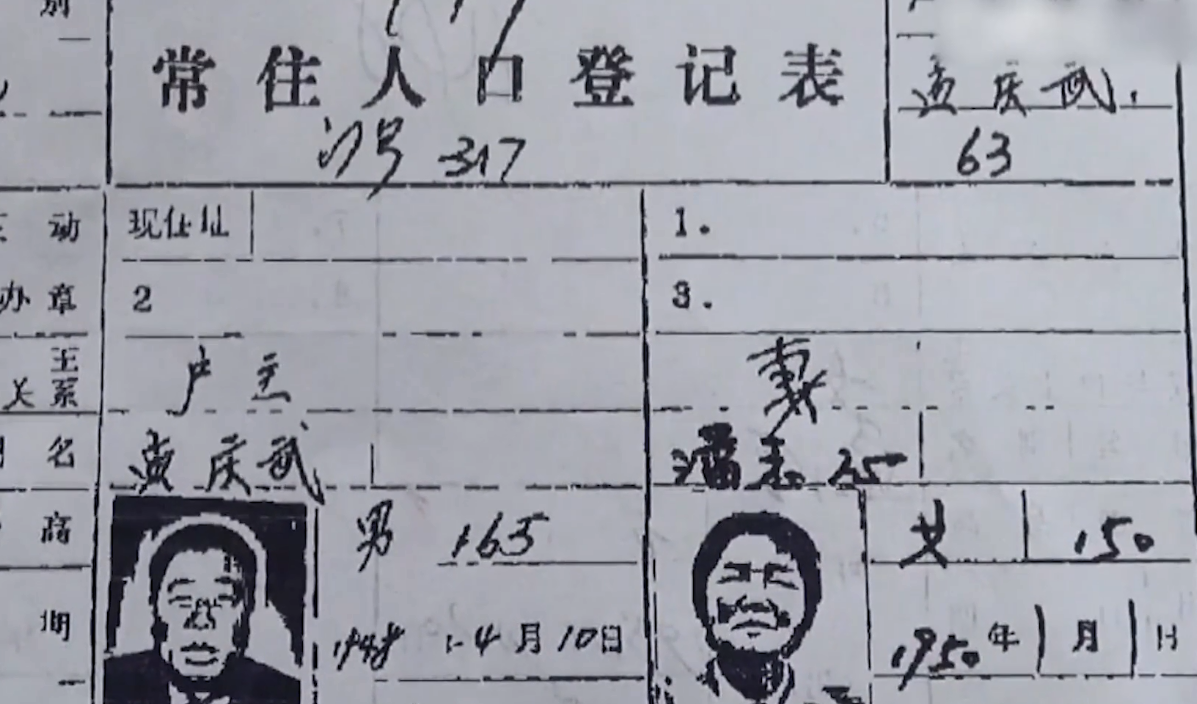 别
常住人口登记表
孟庆武
门号 317
63
动 现住址 1.
办章 2 3.
主
关系 户主 妻
名 孟庆武 潘志
高 男 165 女 150
期 1948 4月10日 1950年1月1日